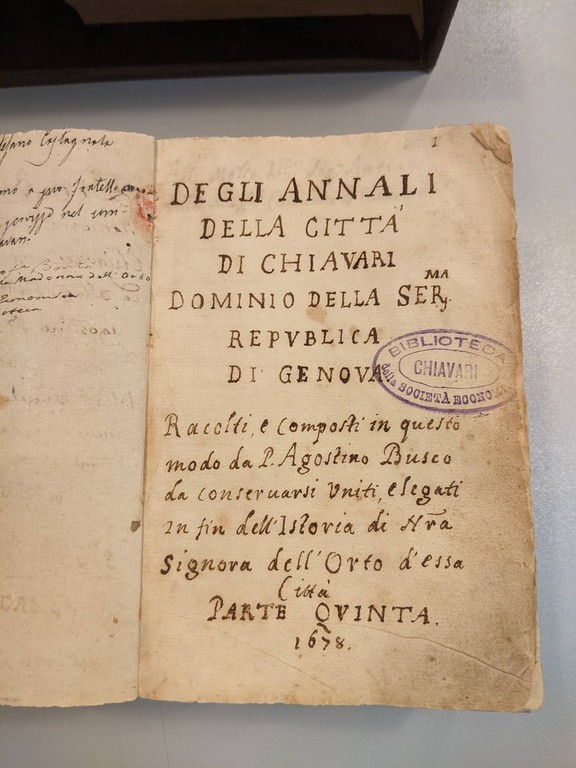 Castagnola
fratello
nel
Madonna dell' Orto
1
DEGLI ANNALI
DELLA CITTÀ
DI CHIAVARI
DOMINIO DELLA SER.MA
REPVBLICA
DI GENOVA
BIBLIOTECA
CHIAVARI
della SOCIETÀ ECONOM
Racolti, e composti in questo
modo da P. Agostino Busco
da conseruarsi Vniti, e legati
in fin dell'Istoria di Nra
Signora dell'Orto d'essa
Città
PARTE QVINTA.
1678.